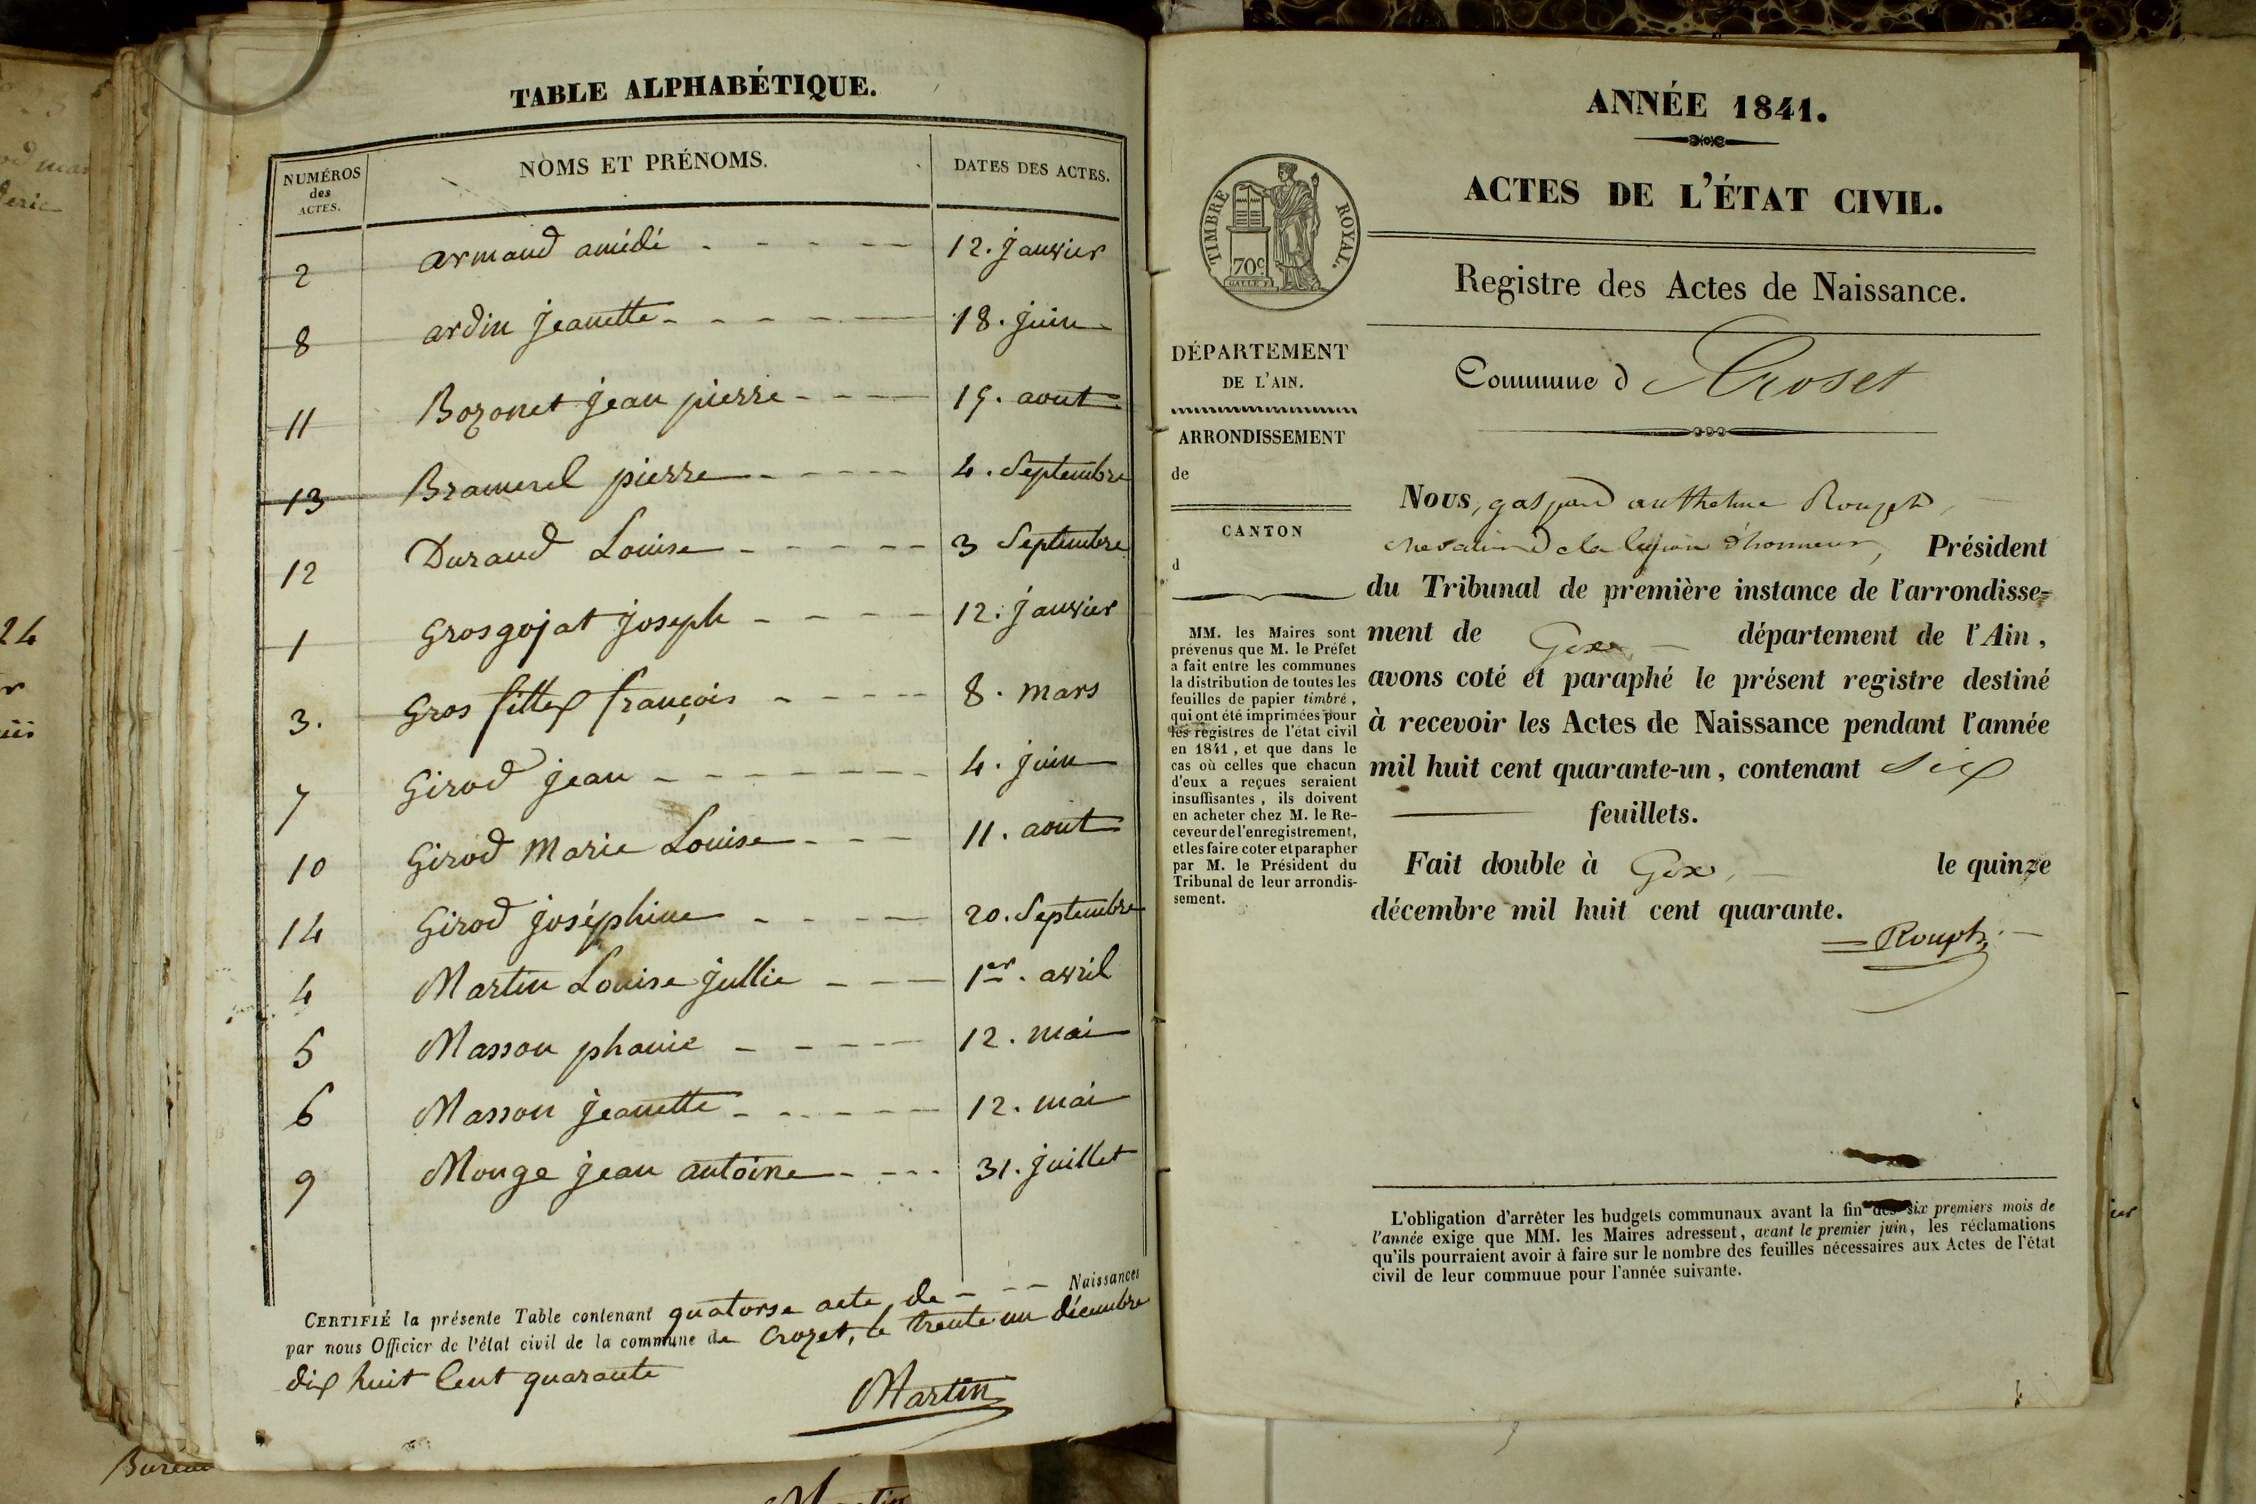 TABLE ALPHABÉTIQUE.
NUMÉROS des ACTES. NOMS ET PRÉNOMS. DATES DES ACTES.
2 armand amédé 12. janvier
8 ardin jeanette 18. juin
11 Bozonet jean pierre 19. aout
13 Bramerel pierre 4. Septembre
12 Durand Louise 3 Septembre
1 Grosgojat joseph 12. janvier
3. Gros fillex françois 8. mars
7 Girod jean 4. juin
10 Girod Marie Louise 11. aout
14 Girod joséphine 20. Septembre
4 Martin Louise jullie 1er. avril
5 Masson phanie 12. mai
6 Masson jeanette 12. mai
9 Monge jean antoine 31. juillet
CERTIFIÉ la présente Table contenant quatorse acte de Naissances
par nous Officier de l'état civil de la commune de Crozet, le trente un décembre
dix huit Cent quarante
Martin
ANNÉE 1841.
ACTES DE L'ÉTAT CIVIL.
TIMBRE ROYAL.
70c
Registre des Actes de Naissance.
Commune d Croset
DÉPARTEMENT
DE L'AIN.
ARRONDISSEMENT
de
CANTON
d
MM. les Maires sont
prévenus que M. le Préfet
a fait entre les communes
la distribution de toutes les
feuilles de papier timbré,
qui ont été imprimées pour
les registres de l'état civil
en 1841, et que dans le
cas où celles que chacun
d'eux a reçues seraient
insuffisantes, ils doivent
en acheter chez M. le Re-
ceveur de l'enregistrement,
et les faire coter et parapher
par M. le Président du
Tribunal de leur arrondis-
sement.
Nous, gaspard anthelme Rouph,
chevalier de la légion d'honneur, Président
du Tribunal de première instance de l'arrondisse-
ment de Gex département de l'Ain,
avons coté et paraphé le présent registre destiné
à recevoir les Actes de Naissance pendant l'année
mil huit cent quarante-un, contenant Six
feuillets.
Fait double à Gex, le quinze
décembre mil huit cent quarante.
Rouph
L'obligation d'arrêter les budgets communaux avant la fin des six premiers mois de
l'année exige que MM. les Maires adressent, avant le premier juin, les réclamations
qu'ils pourraient avoir à faire sur le nombre des feuilles nécessaires aux Actes de l'état
civil de leur commune pour l'année suivante.
24